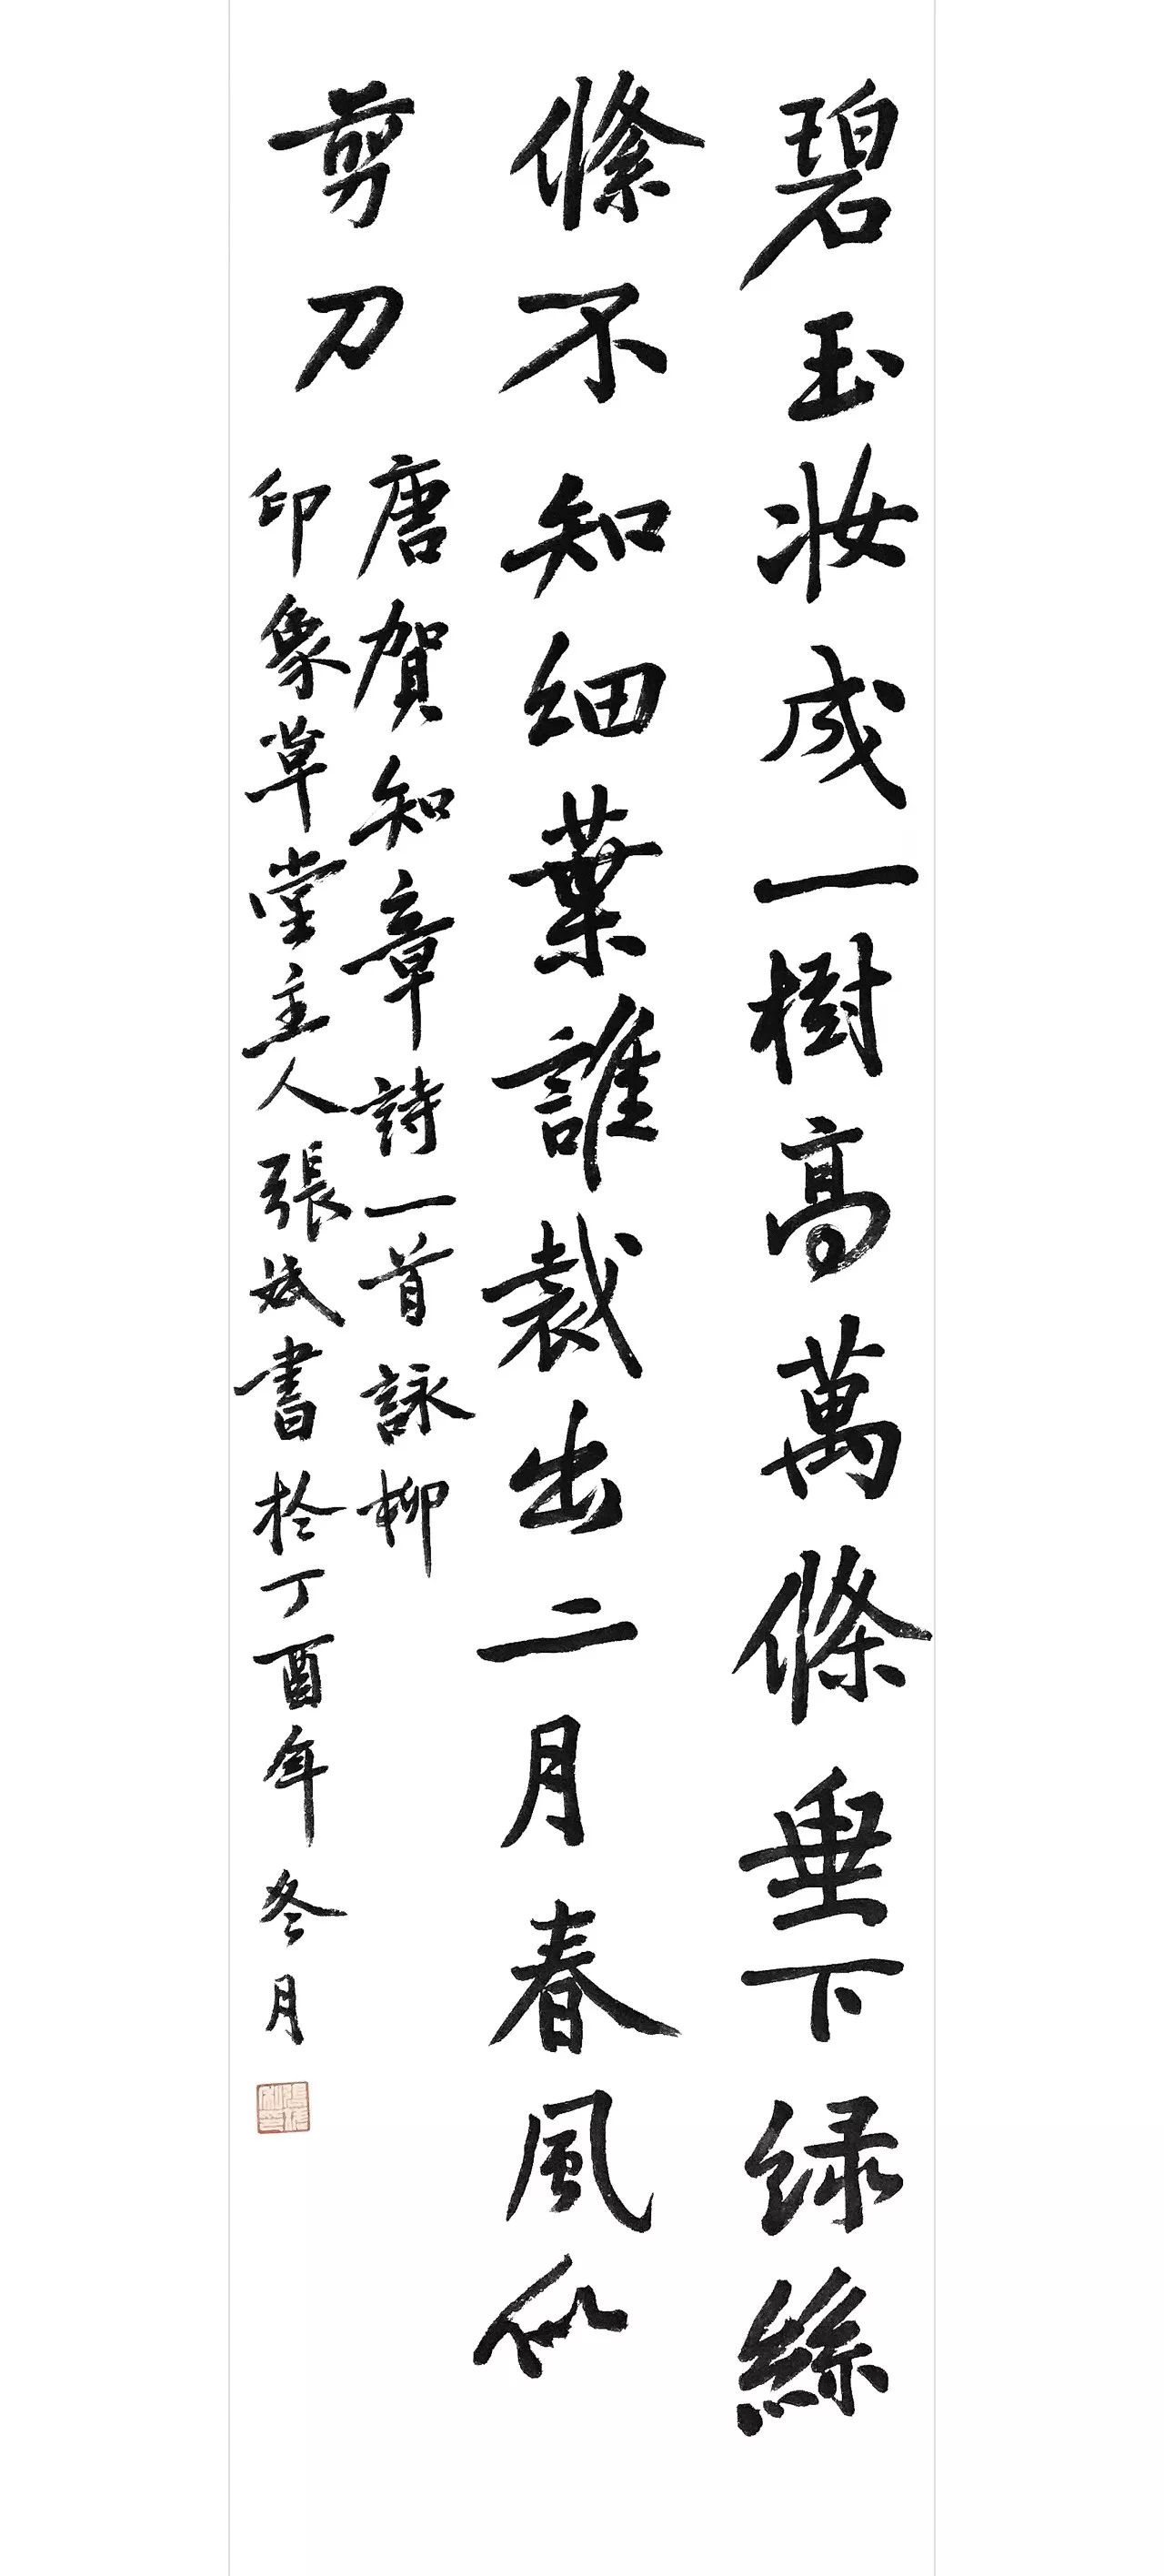 碧玉妆成一樹高萬條垂下绿絲
絛不知细葉誰裁出二月春風似
剪刀
唐賀知章詩一首詠柳
印象草堂主人張斌書於丁酉年冬月